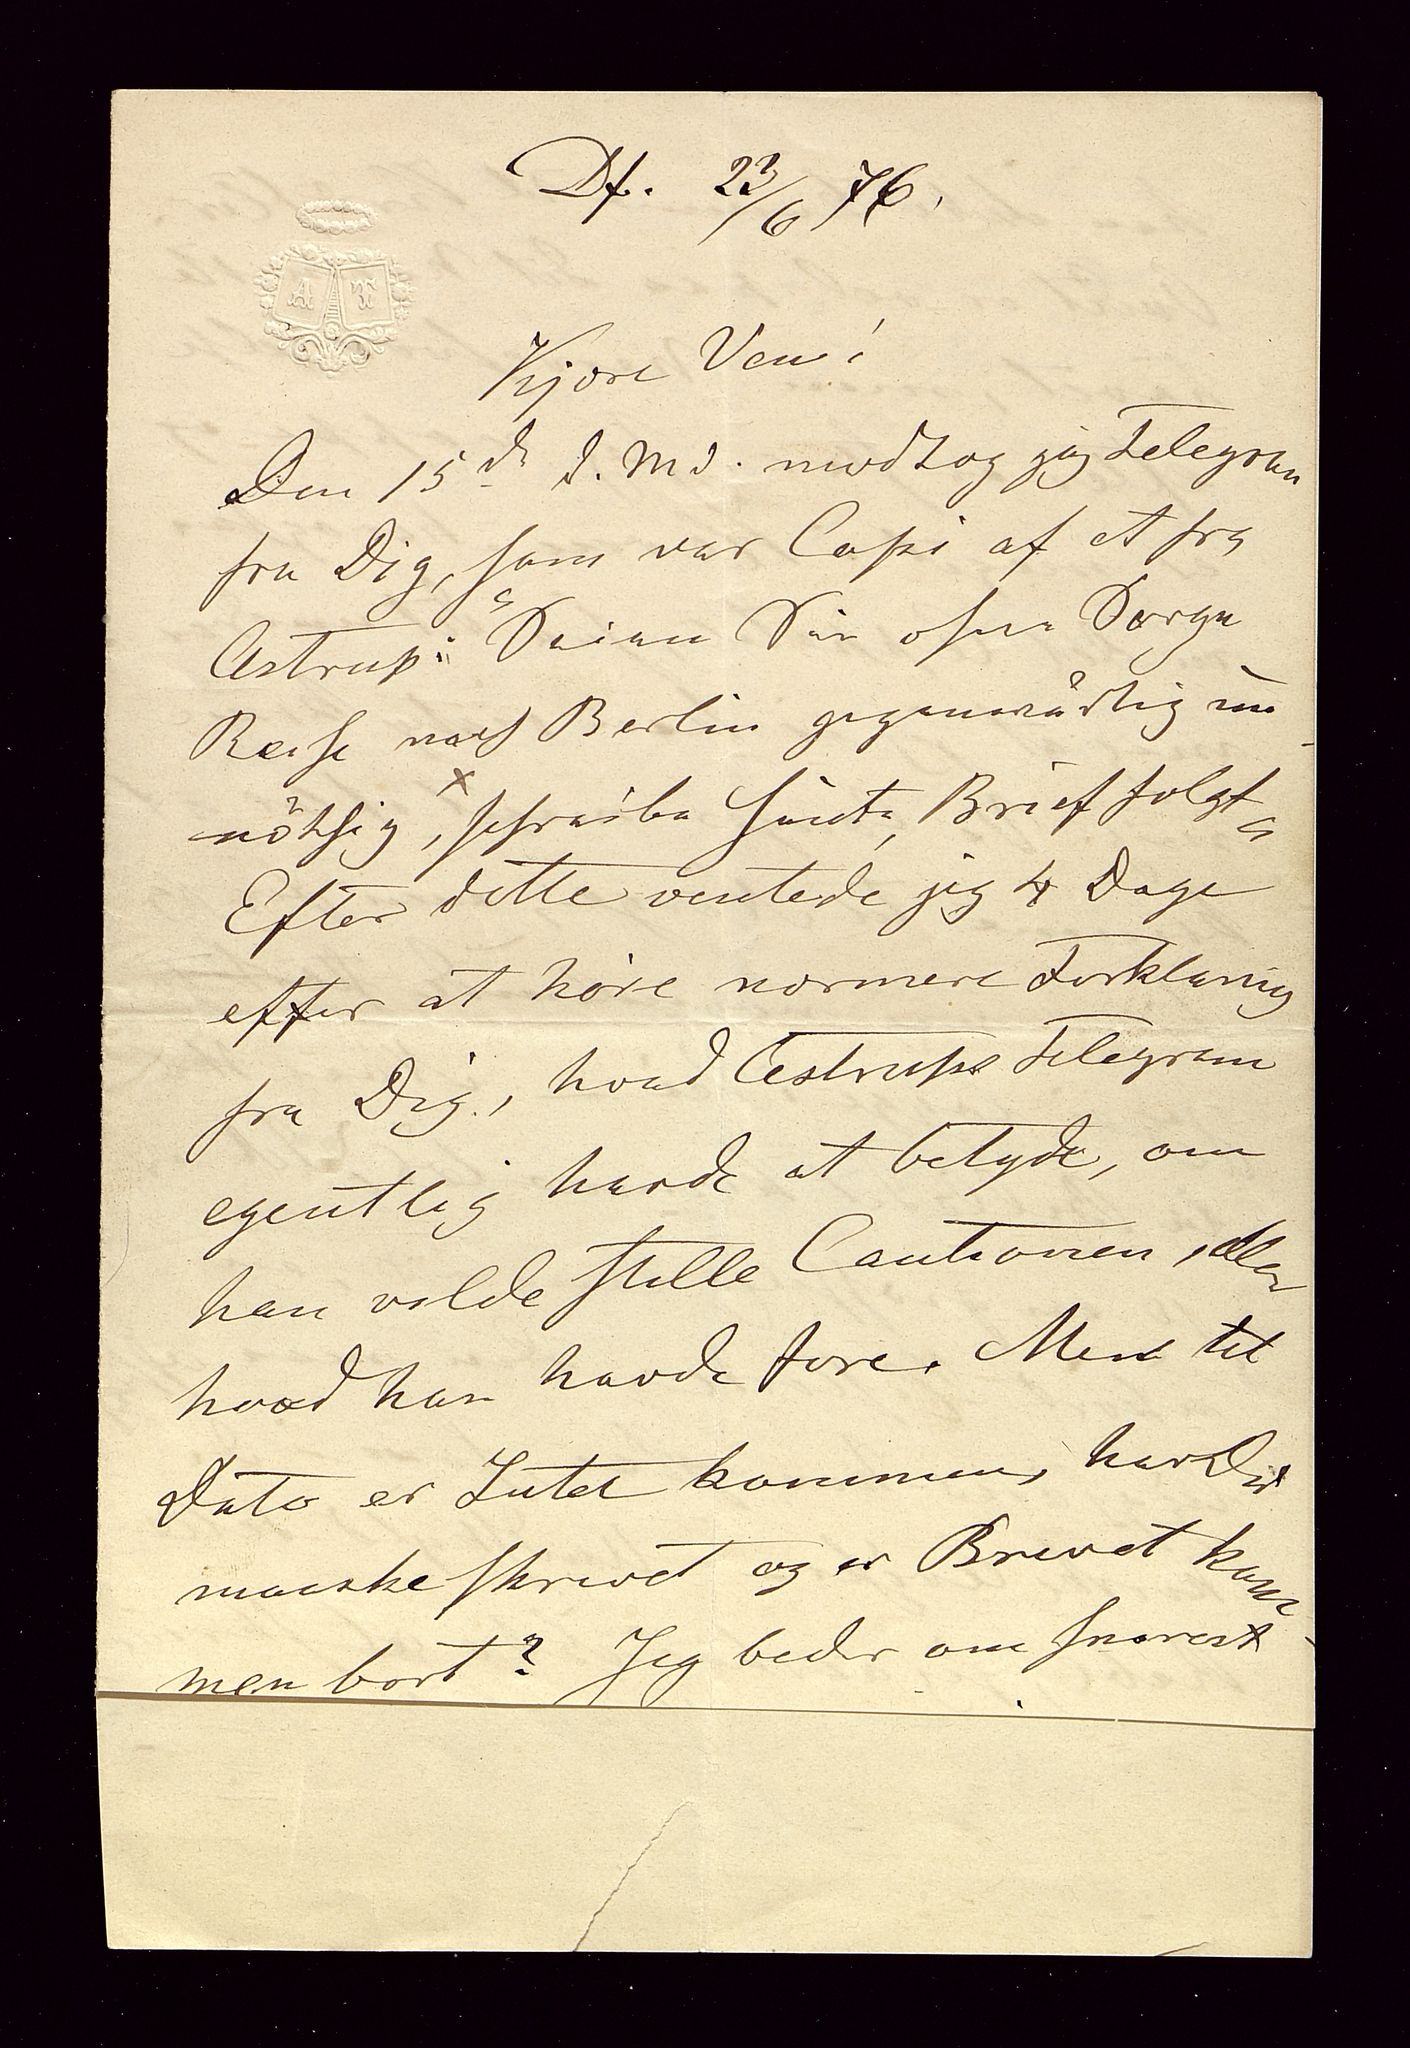 Df. 23/6 76.
A T
Kjære Ven!
Den 15de d. Md. modtog jeg Telegram
fra Dig, som var Copi af et fra
Astrup: "Seien Sie ohne Sorge
Reise nach Berlin gegenwärtig un-
nöthig, schreibe heute, Brief folgt"
Efter dette ventede jeg 4 Dage
efter at höre nærmere Forklaring
fra Dig, hvad Astrups Telegram
egentlig havde at betyde, om
han vilde stille Cautionen, eller
hvad han havde fore. Men til
Dato er Intet kommen, har Du
maaske skrevet og er Brevet kom-
men bort? Jeg beder om snarest